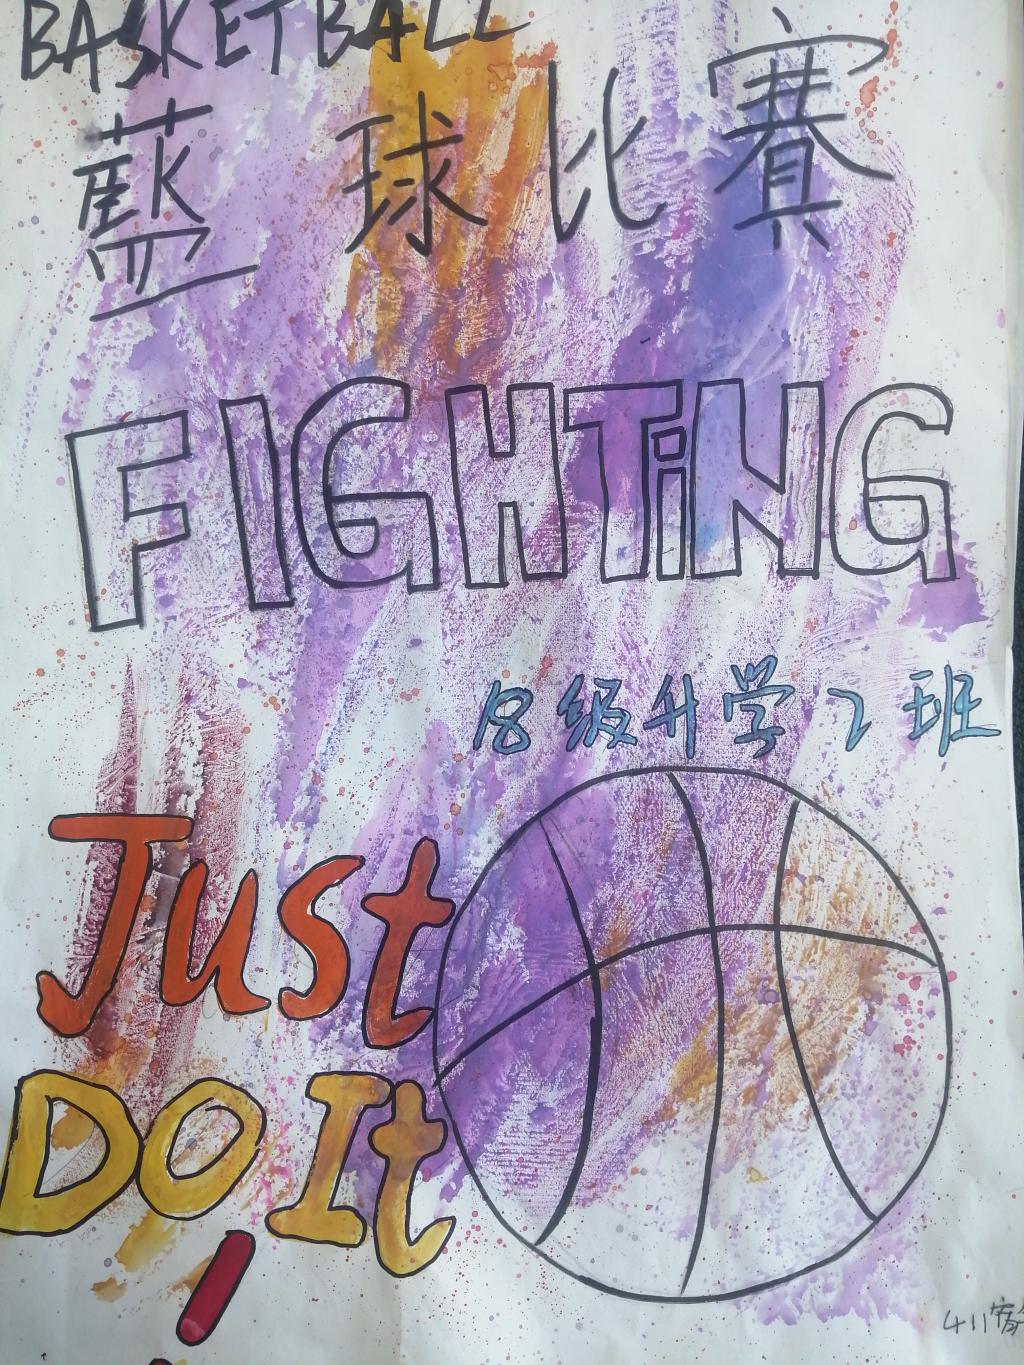 BASKETBALL
藍球比賽
FIGHTiNG
18级升学2班
Just
DO It
!
411